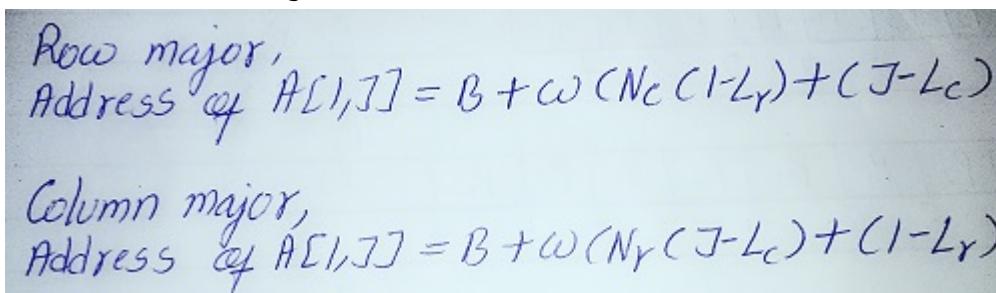 Row major,
Address of A[I,J] = B + W (Nc (I-Lr) + (J-Lc)
Column major,
Address of A[I,J] = B + W (Nr (J-Lc) + (I-Lr)